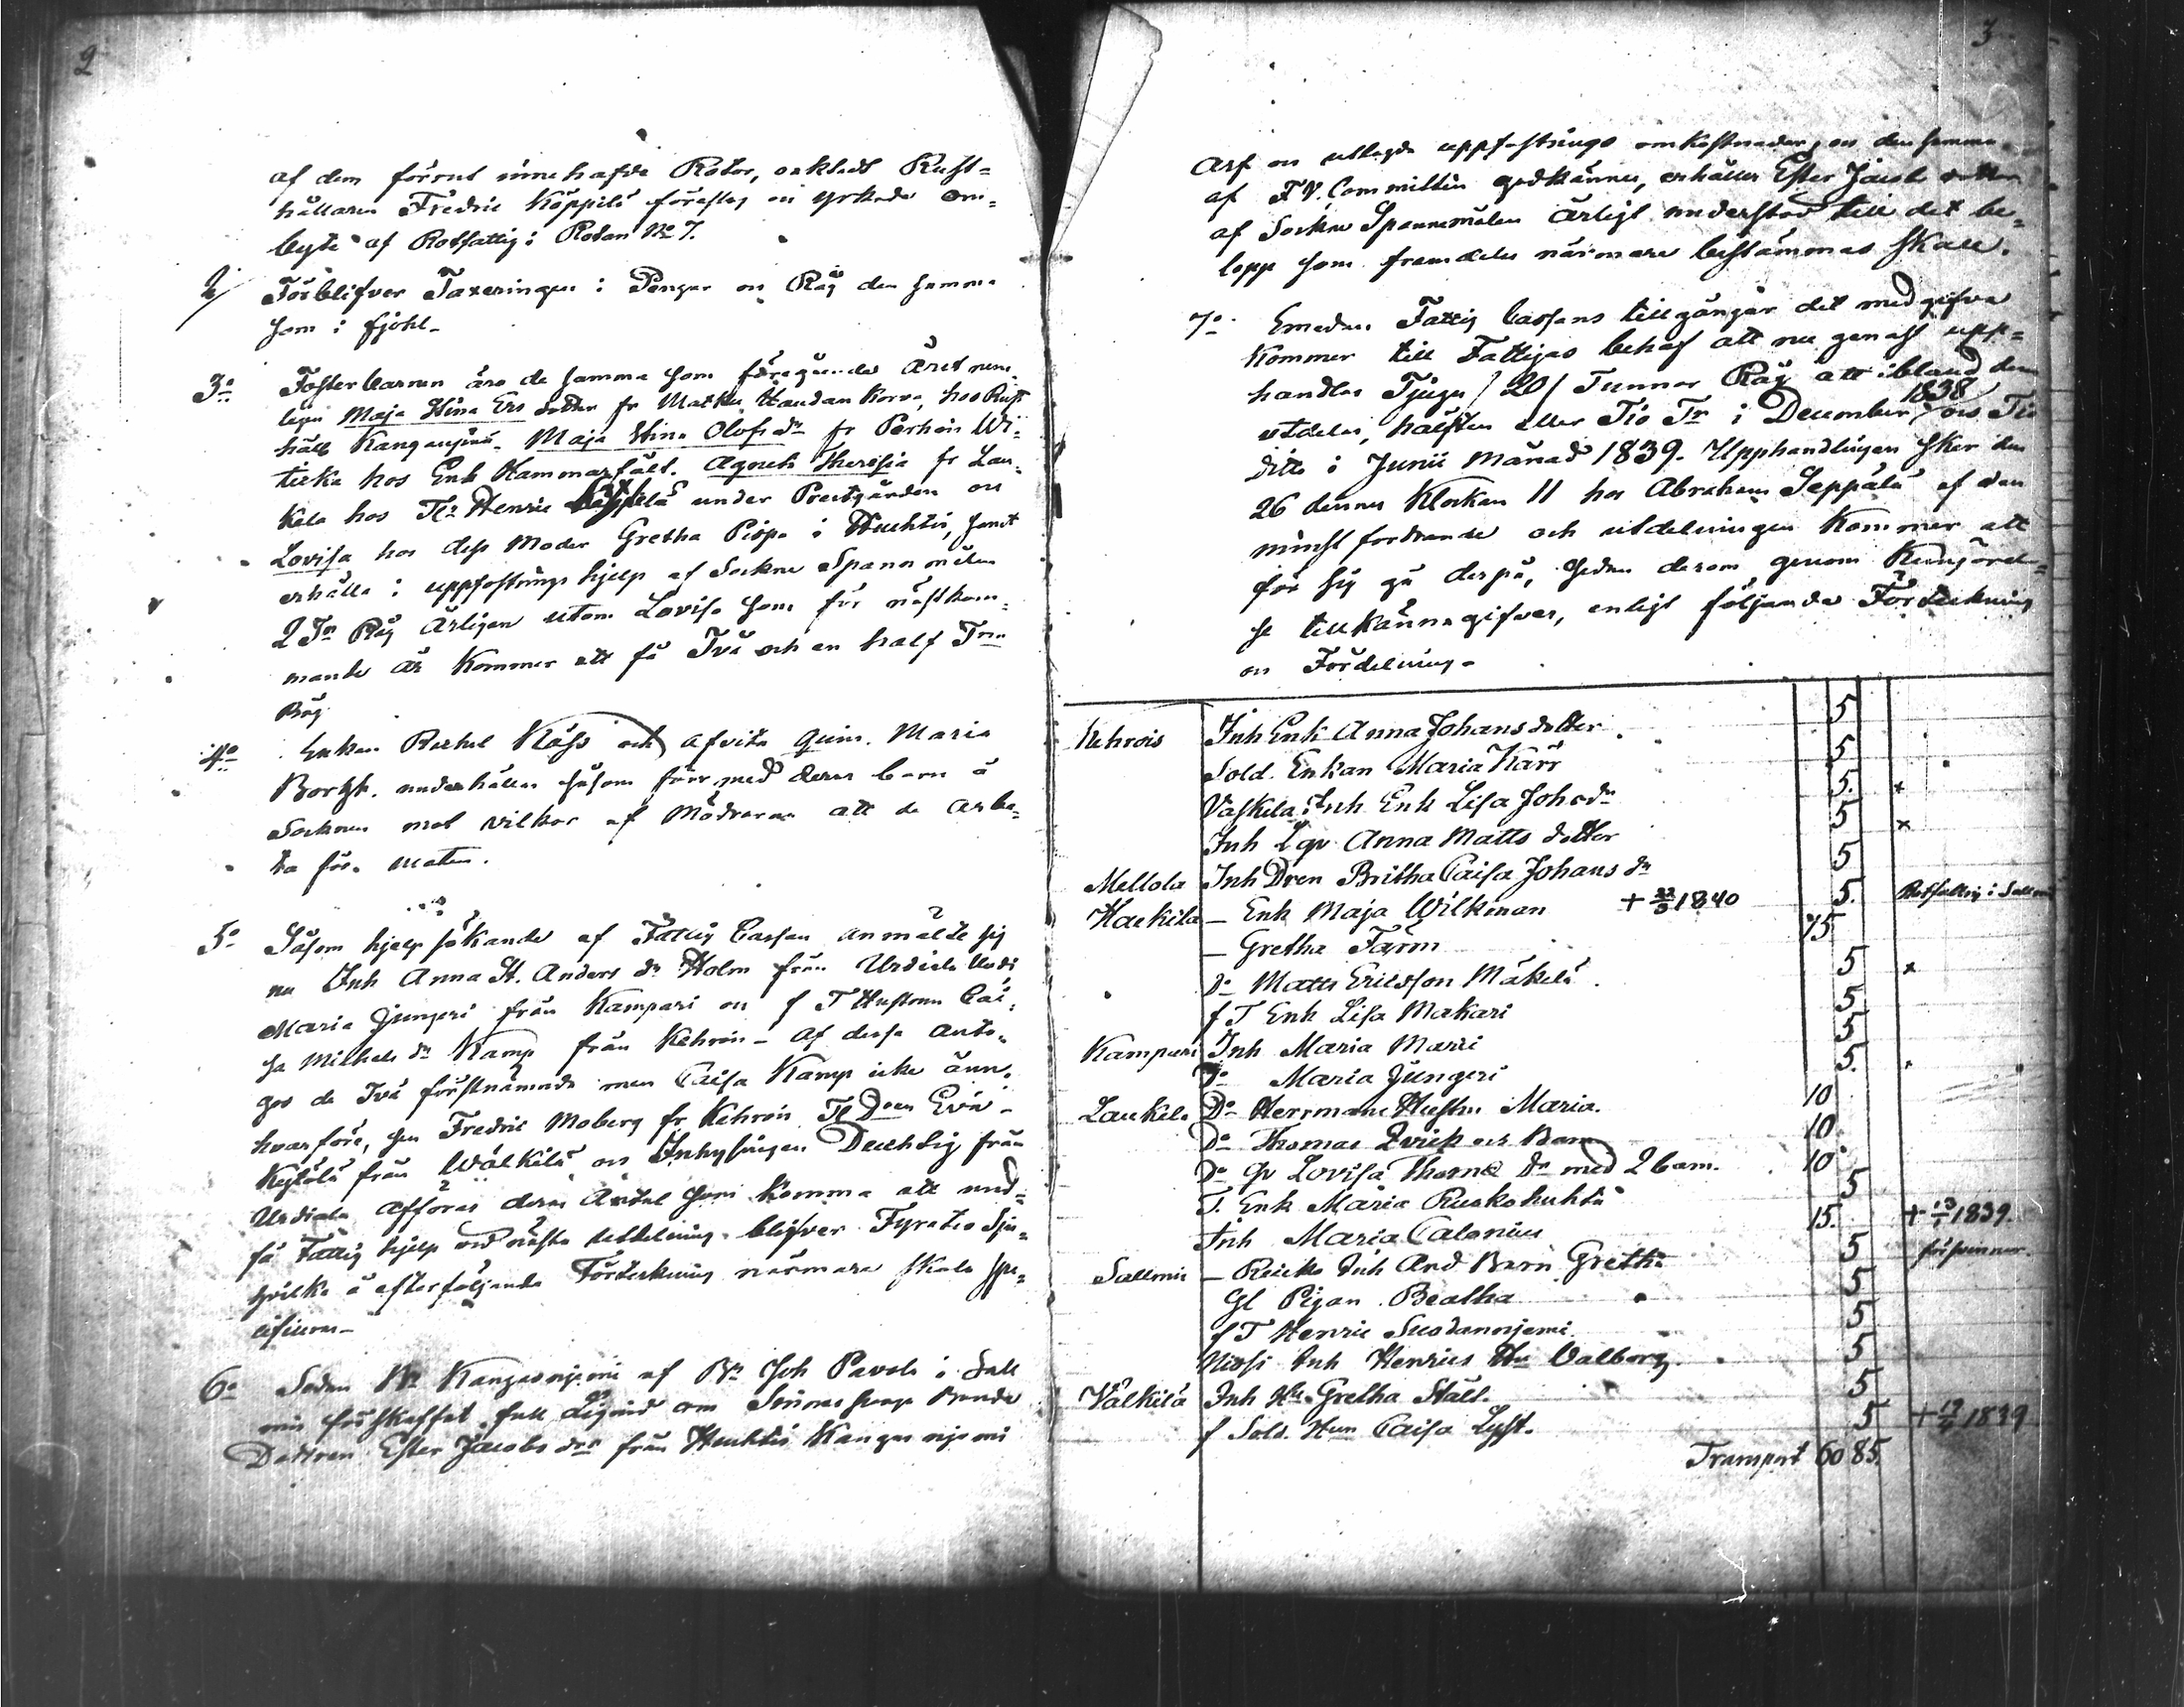 2
af dem förrut innehafde Rotor, oaktadt Rust=
hållaren Fredric Köppilä föreslog och yrkade om=
byte af Rotfattig i Rotan No 7.
2/ Förblifver Taxeringen i Pengar och Råg den samma
som i fjohl.
3o Fosterbarnen äro de samma som föregående Året nem
ligen Maja Stina Ers dotter fr Mattku Haudan Korva, hos Rust
håll Kangasniemi. Maja Stina Olofs dr fr Perhois Wi=
ticka hos Enk Hammarfält. Agneta Theresia fr Lau=
kela hos Tr Henric under Prestgården och
Lovisa hos dess Moder Gretha Pispa i Huhtis, samt
erhålla i uppfostrings hjelp af Sockne Spannmålen
2 Tr Råg Årligen utom Lovisa som för nästkom=
mande år kommer att få Två och en half Tnn
Råg
4o Enkan Rachel Käss och afvita qvin. Maria
Borgst. underhålles såsom förr med deras barn å
Socknen mot vilkor af Mödrarne att de arbe=
ta för maten.
5o Såsom hjelp sökande af Fattig Cassan anmälte sig
nu Inh Anna St. Anders dr Holm från Urdiala
Maria Jungeri från Kampari och f T Hustrun Cai=
sa Michels dr Kamp från Kehrois - af dessa anto=
gos de Två förstnämnda men Caisa Kamp icke ännu
hvarföre, sen Fredric Moberg fr Kehrois Tl Dren Eva
Kylälä från Wälkilä och Inhysingen Duchtig från
Urdiala afföras deras Antal som komma att und=
få Fattig hjelp vid nästa utdelning blifver Fyratio Sju=
hvilka å efterföljande Förteckning närmare skola spe=
cificeras -
6o Sedan Rr Kangasniemi af Br Joh Pavola i Sall
mis förskaffat full Liqvid om Sinnessvaga Bonde
Dottren Ester Jacobs dr från Huhtis Kangasniemi
3
Arf och utlagda uppfostrings omkostnader, och den samma
af F.V. Committén godkännes, erhåller Ester Jacobs dotter
af Sockne Spannmålen årligt understöd till det be=
lopp som framdeles närmare bestämmas skall.
7o Emedan Fattig Cassans tillgångar det medgifva
kommer till Fattigas behof att nu genast upp=
handlas Tjugu /20/ Tunnor Råg att ibland dem
utdelas, hälften eller Tio Tr i December 1838 och Tio
ditto i Junii Månad 1839. Upphandlingen sker den
26 dennes Klockan 11 hos Abraham Seppälä af den
minst fordrande och utdelningen kommer att
för sig gå derpå, sedan derom genom Kungörel=
se tillkännagifves, enligt följande Förteckning
och Fördelning -
Kehrois Inh Enk Anna Johans dotter 5
Sold. Enkan Maria Kärr 5
Vaskila Inh Enk Lisa Johs dr 5. x
Inh Lqv Anna Matts dotter 5 x
Mellola Inh Dren Britha Caisa Johans dr 5
Haekilä - Enk Maja Wilkman + 22/3 1840 5. Rotfattig i Sallmi
- Gretha Färm 15
Do Matts Ericsson Mäkelä 5 x
f T Enk Lisa Makari 5
Kampari Inh Maria Marri 5
Do Maria Jungeri 5.
Laukela Do Herrmans Hustru Maria. 10
Do Thomas Qvick och Barn 10
Do qv Lovisa Thoma dr med 2 barn. 10
T. Enk Maria Ruskohuhta 5
Inh Maria Calonius 15. + 13/1 1839.
Sallmis - Reicko Inh And. Barn Gretha 5 försvinner.
Gl Pigan Beatha 5
f T Henric Suodanniemi 5
Niosi Inh Henrics Hu Valborg. 5
Välkilä Inh Hu Gretha Ståll. 5
f Sold. Hun Caisa Lyst. 5 + 19/4 1839
Transport 60 85.